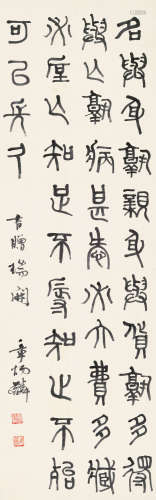 名與身孰親身與貨孰多得
與亡孰病甚愛必大費多藏
必厚亡知足不辱知止不殆
可以長久
書贈
章炳麟